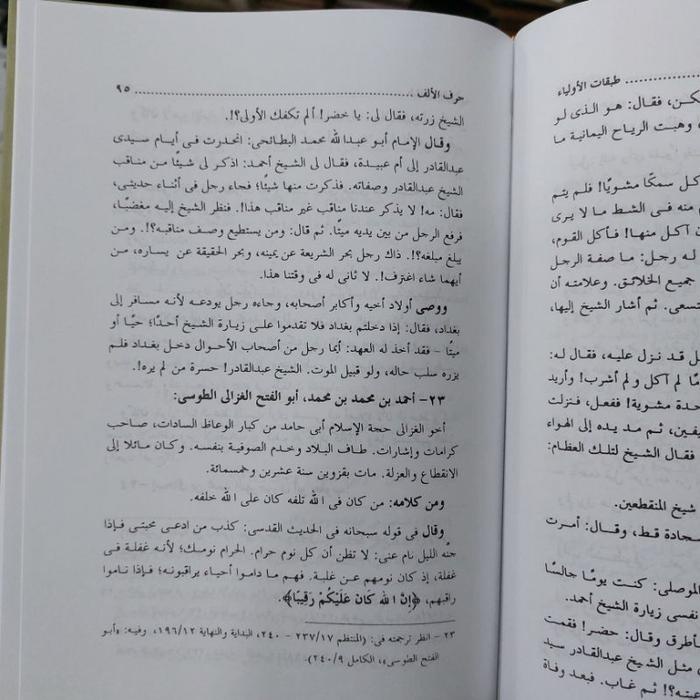 حرف الألف .......................................................... ٩٥
الشيخ زرته، فقال لى: يا خضر! ألم تكفك الأولى؟!.
وقال الإمام أبو عبدالله محمد البطائحى: انحدرت فى أيام سيدى
عبدالقادر إلى أم عبيدة، فقال لى الشيخ أحمد: اذكر لى شيئًا من مناقب
الشيخ عبدالقادر وصفاته. فذكرت منها شيئًا؛ فجاء رجل فى أثناء حديثى،
فقال: مه! لا يذكر عندنا مناقب غير مناقب هذا!. فنظر الشيخ إليه مغضبًا،
فرفع الرجل من بين يديه ميتًا. ثم قال: ومن يستطيع وصف مناقبه؟!. ومن
يبلغ مبلغه؟!. ذاك رجل بحر الشريعة عن يمينه، وبحر الحقيقة عن يساره، من
أيهما شاء اغترف!. لا ثانى له فى وقتنا هذا.
ووصى أولاد أخيه وأكابر أصحابه، وجاءه رجل يودعه لأنه مسافر إلى
بغداد، فقال: إذا دخلتم بغداد فلا تقدموا على زيارة الشيخ أحدًا؛ حيًا أو
ميتًا - فقد أخذ له العهد: أيما رجل من أصحاب الأحوال دخل بغداد فلم
يزره سلب حاله، ولو قبيل الموت. الشيخ عبدالقادر! حسرة من لم يره!.
٢٣- أحمد بن محمد بن محمد، أبو الفتح الغزالى الطوسى:
أخو الغزالى حجة الإسلام أبى حامد من كبار الوعاظ السادات، صاحب
كرامات وإشارات. طاف البلاد وخدم الصوفية بنفسه. وكان مائلا إلى
الانقطاع والعزلة. مات بقزوين سنة عشرين وخمسمائة.
ومن كلامه: من كان فى الله تلفه كان على الله خلفه.
وقال فى قوله سبحانه فى الحديث القدسى: كذب من ادعى محبتى فإذا
جنّه الليل نام عنى: لا تظن أن كل نوم حرام. الحرام نومك؛ لأنه غفلة فى
غفلة، إذ كان نومهم عن غلبة. فهم ما داموا أحياء يراقبونه؛ فإذا ناموا
راقبهم، ﴿إِنَّ الله كَانَ عَلَيْكُمْ رَقِيبًا﴾.
٢٣ - انظر ترجمته فى: (المنتظم ٢٣٧/١٧ - ٢٤٠، البداية والنهاية ١٩٦/١٢، وفيه: «أبو
الفتح الطوسى»، الكامل ٢٤٠/٩).
طبقات الأولياء
كن، فقال: هو الذى لو
وهبت الرياح اليمانية ما
كل سمكًا مشويًا! فلم يتم
منه فى الشط ما لا يرى
ن آكل منها! فأكل القوم،
له رجل: ما صفة الرجل
جميع الخلائق. وعلامته أن
تسعى. ثم أشار الشيخ إليها،
ل قد نزل عليه، فقال له:
مًا لم آكل ولم أشرب! وأريد
حدة مشوية! ففعل، فنزلت
يفين، ثم مد يده إلى الهواء
فقال الشيخ لتلك العظام:
شيخ المنقطعين.
سجادة قط، وقال: أمرت
الموصلى: كنت يومًا جالسًا
نفسى زيارة الشيخ أحمد.
فأطرق وقال: حضر! فقمت
مثل الشيخ عبدالقادر سيد
؟! ثم غاب. فبعد وفاة